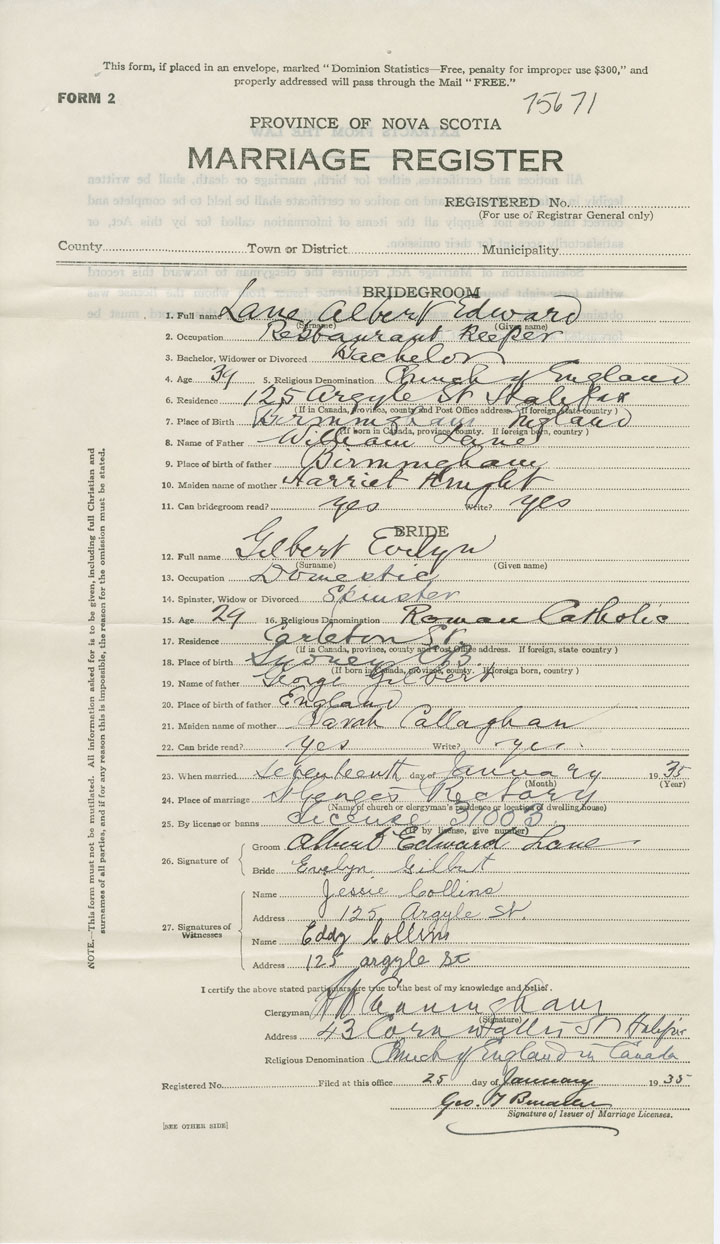 This form, if placed in an envelope, marked "Dominion Statistics—Free, penalty for improper use $300," and
properly addressed will pass through the Mail "FREE."
FORM 2
75671
PROVINCE OF NOVA SCOTIA
MARRIAGE REGISTER
REGISTERED No.
(For use of Registrar General only)
County Town or District Municipality
BRIDEGROOM
1. Full name Lane Albert Edward
(Surname) (Given name)
2. Occupation Restaurant Keeper
3. Bachelor, Widower or Divorced Bachelor
4. Age 39 5. Religious Denomination Church of England
6. Residence 125 Argyle St Halifax
(If in Canada, province, county and Post Office address. If foreign, state country)
7. Place of Birth Birmingham England
(If born in Canada, province, county. If foreign born, country)
8. Name of Father William Lane
9. Place of birth of father Birmingham
10. Maiden name of mother Harriet Knight
11. Can bridegroom read? yes Write? yes
BRIDE
12. Full name Gilbert Evelyn
(Surname) (Given name)
13. Occupation Domestic
14. Spinster, Widow or Divorced Spinster
15. Age 29 16. Religious Denomination Roman Catholic
17. Residence Carleton St.
(If in Canada, province, county and Post Office address. If foreign, state country)
18. Place of birth Sydney C.B.
(If born in Canada, province, county. If foreign born, country)
19. Name of father George Gilbert
20. Place of birth of father England
21. Maiden name of mother Sarah Callaghan
22. Can bride read? yes Write? yes.
23. When married Seventeenth day of January 1935
(Month) (Year)
24. Place of marriage St Georges Rectory
(Name of church or clergyman's residence or location of dwelling house)
25. By license or banns License 31003
(If by license, give number)
26. Signature of
Groom Albert Edward Lane
Bride Evelyn Gilbert
27. Signatures of Witnesses
Name Jessie Collins
Address 125 Argyle St.
Name Eddy Collins
Address 125 argyle St
I certify the above stated particulars are true to the best of my knowledge and belief.
Clergyman Cunningham
(Signature)
Address 43 Cornwallis St Halifax
Religious Denomination Church of England in Canada
Registered No. Filed at this office 25 day of January 1935
Geo.
Signature of Issuer of Marriage Licenses.
[SEE OTHER SIDE]
NOTE.—This form must not be mutilated. All information asked for is to be given, including full Christian and
surnames of all parties, and if for any reason this is impossible, the reason for the omission must be stated.